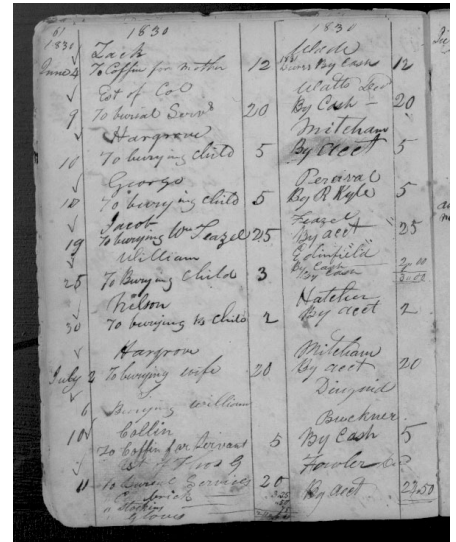 61 1830 1830
1830 Zack Wade
June 4 To Coffin for mother 12 By Cash 12
Est of Col Watts
9 To burial Serv 20 By Cash 20
Hargrove Mitcham
10 To burying child 5 By acct 5
George Percival
10 To burying child 5 By R Kyle 5
Jacob Feazel
19 To burying Wm Feazel 25 By acct 25
William Edinfield
25 To Burying Child 3 By Cash
Nelson Hatcher
30 To burying his child 2 By acct 2
Hargrove Mitcham
July 2 To burying wife 20 By acct 20
6 Burying William
Collin Buckner
10 To Coffin for Servant 5 By Cash 5
Fowler
11 To Burial Services 20 By acct 23.50
" Stocking
Gloves